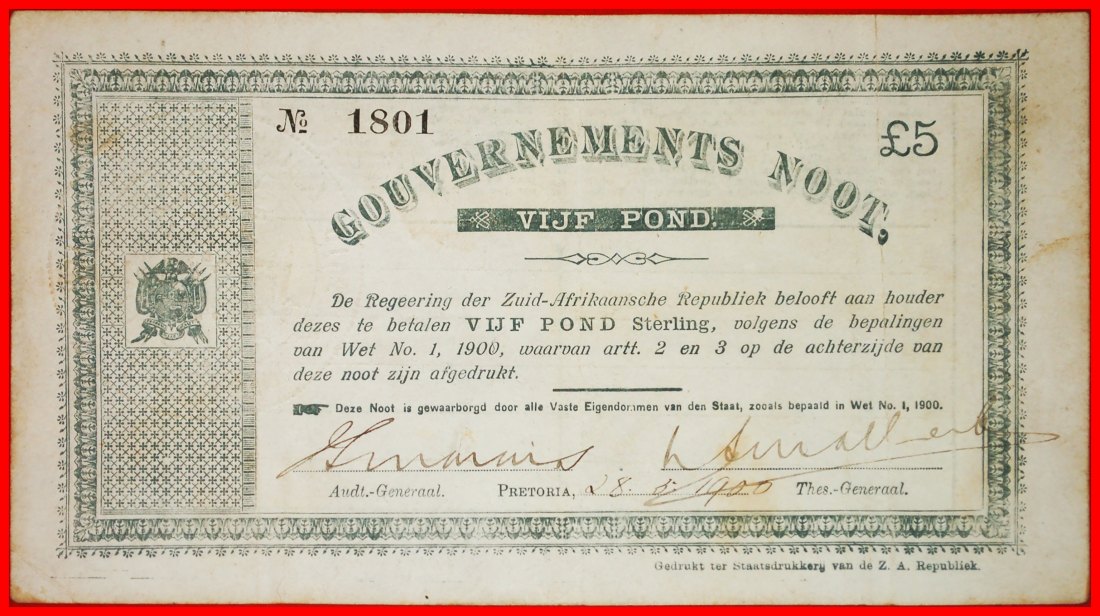 № 1801
£5
GOUVERNEMENTS NOOT,
VIJF POND.
De Regeering der Zuid-Afrikaansche Republiek belooft aan houder
dezes te betalen VIJF POND Sterling, volgens de bepalingen
van Wet No. 1, 1900, waarvan artt. 2 en 3 op de achterzijde van
deze noot zijn afgedrukt.
Deze Noot is gewaarborgd door alle Vaste Eigendommen van den Staat, zooals bepaald in Wet No. 1, 1900.
Audt.-Generaal. PRETORIA, 28 5/1900 Thes.-Generaal.
Gedrukt ter Staatsdrukkery van de Z. A. Republiek.